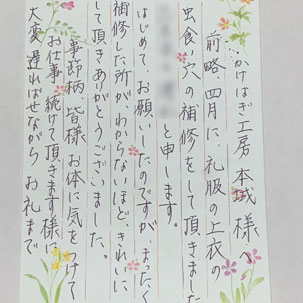 かけはぎ工房 本城 様へ
前略、四月に、礼服の上衣の
虫食い穴の補修をして頂きました
と申します。
はじめて お願いしたのですが、まったく
補修した所が、わからないほど、きれいに
して頂きありがとうございました。
事節柄 皆様 お体に気をつけて
お仕事 続けて頂きます様に、
大変 遅ればせながら お礼まで